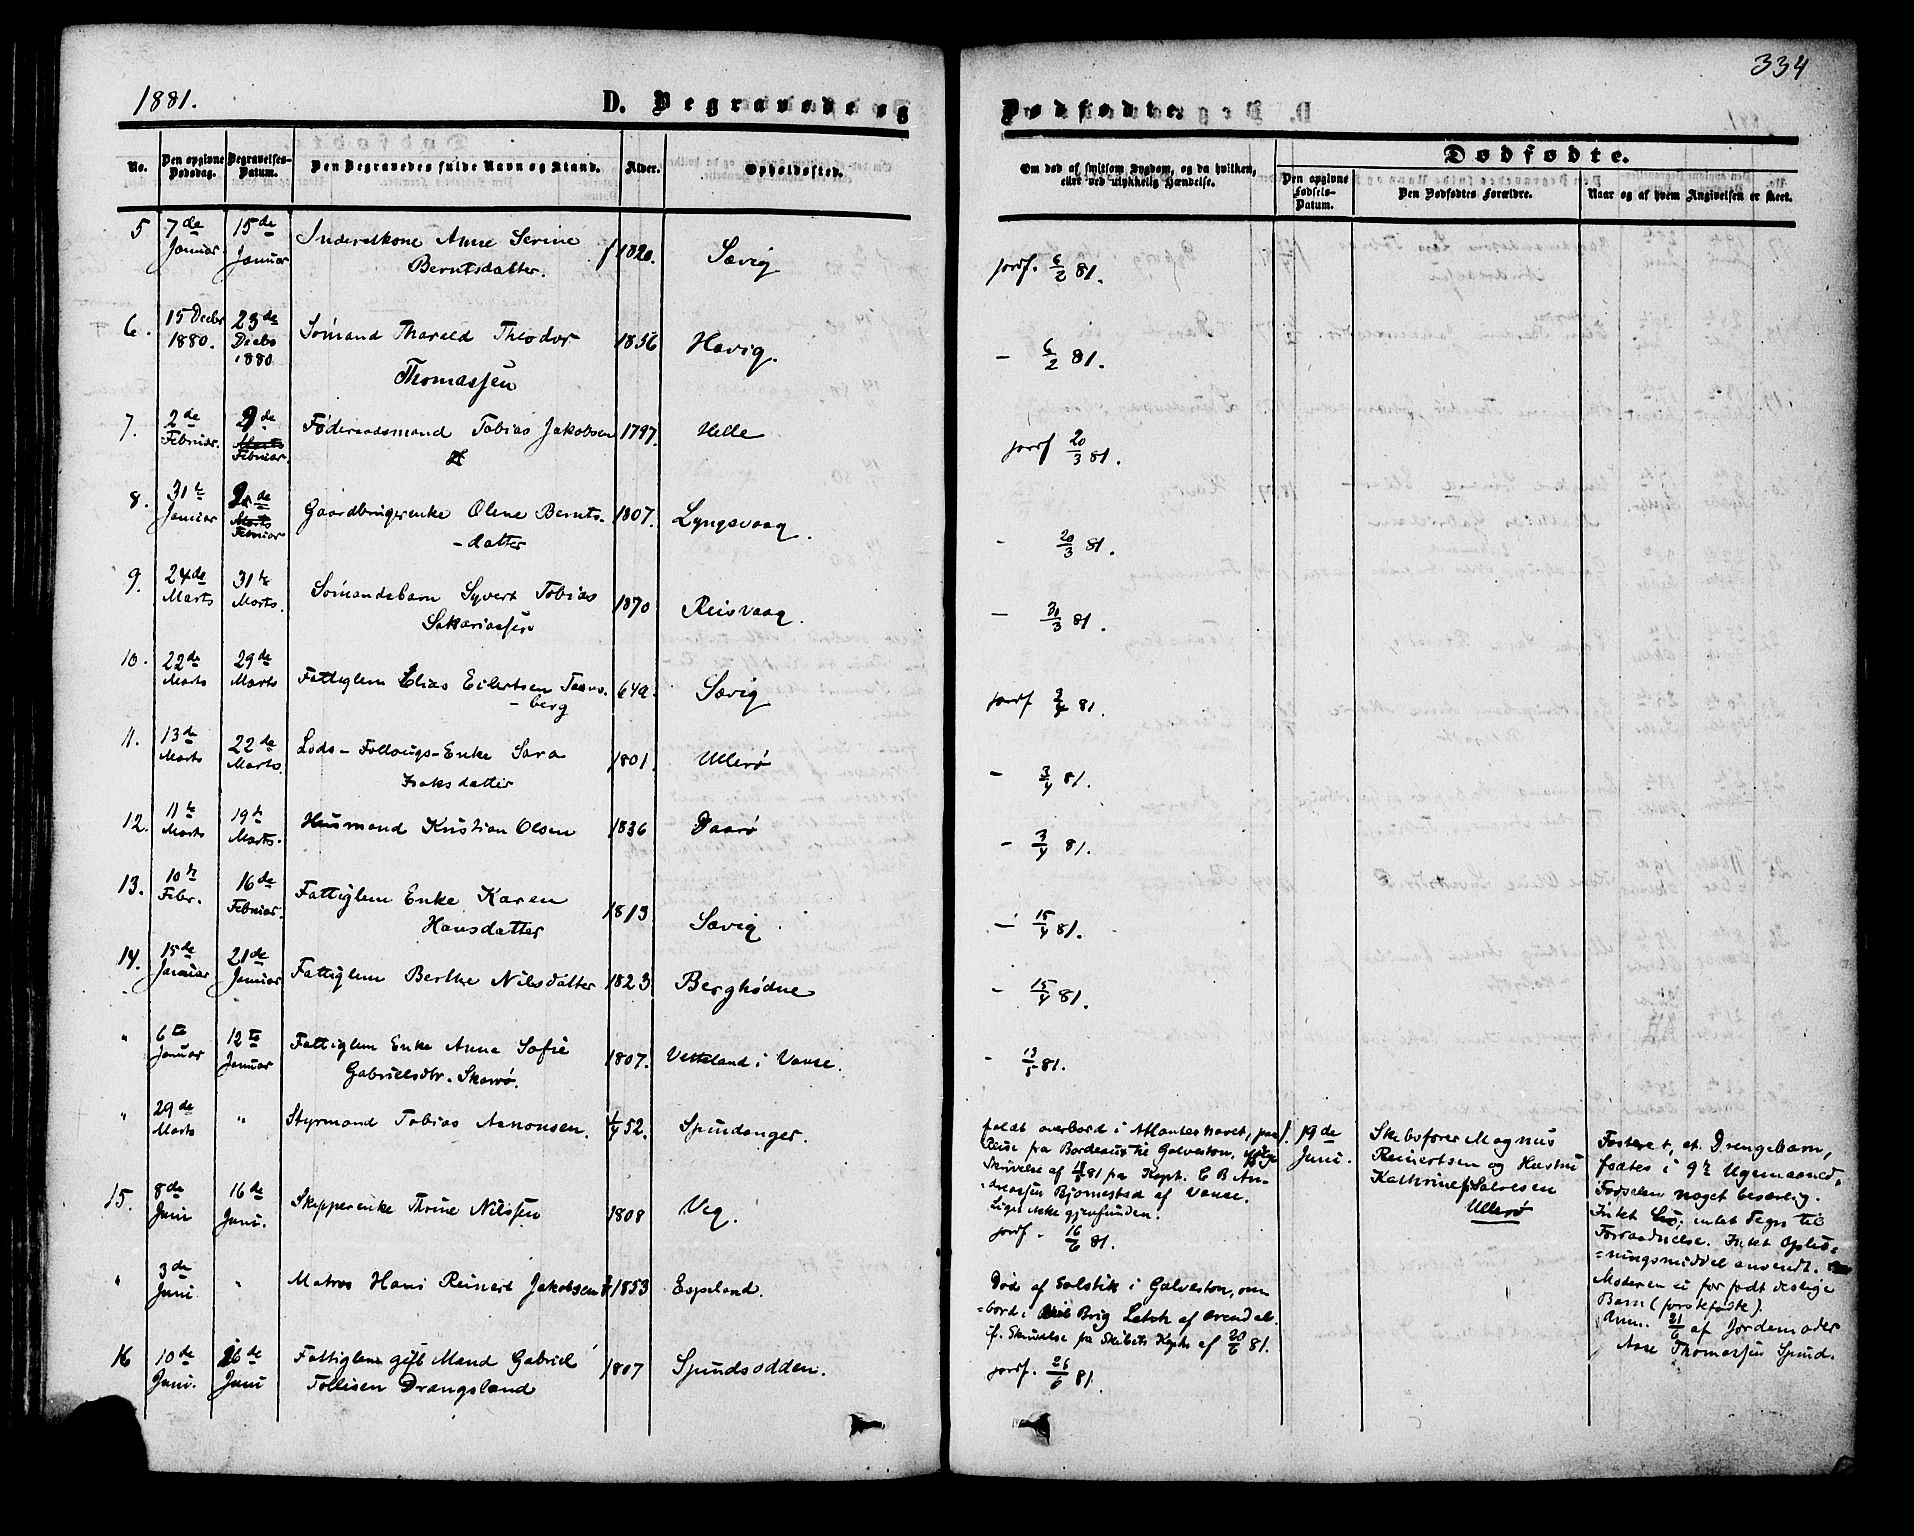 334
1881.
D. Begravede og
Dødfødte.
No.
Den opgivne Dødsdag.
Begravelses-Datum.
Den Begravedes fulde Navn og Stand.
Alder.
Opholdssted.
Om død af smitsom Sygdom, og da hvilken,
eller ved ulykkelig Hændelse.
Dødfødte.
Den opgivne Fødsels-Datum.
Den Dødfødtes Forældre.
Naar og af hvem Angivelsen er skeet.
5 7de Januar 15de Januar Inderstkone Anne Serine f 1820. Sævig jordf. 6/2 81.
Berntsdatter.
6. 15 Decbr 1880. 23de Decbr 1880 Sømand Tharald Theodor 1856 Havig. - 6/2 81.
Thomassen
7. 2de Februar. Marts Februar. Føderaadsmand Tobias Jakobsen 1797. Helle jordf 20/3 81.
8. 31te Januar Marts Februar Gaardbrugerenke Olene Bernts- 1807. Lyngsvaag. - 20/3 81.
-datter
9. 24de Marts 31te Marts. Sømandsbarn Syvert Tobias 1870 Reisvaag. - 30/3 81.
Sakariassen
10. 22de Marts 29de Marts Fattiglem Elias Eilertsen 64a. Sævig jordf 3/4 81.
-berg
11. 13de Marts 22de Marts. Lods-Follougs-Enke Sara 1801. Ullerø - 3/4 81.
Isaksdatter
12. 11te Marts 19te Marts. Husmand Kristian Olsen 1836 Daarø - 3/4 81.
13. 10de Febr. 16de Februar. Fattiglem Enke Karen 1813 Sævig - 15/4 81.
Hansdatter
14. 15de Januar 21de Januar Fattiglem Berthe Nilsdatter 1823 Berghødne - 15/4 81.
" 6te Januar 12te Januar Fattiglem Enke Anne Sofie 1807. Vetteland i Vanse. - 81.
Gabrielsdtr. Skarrø.
" 29de Marts " Styrmand Tobias Aanonsen. 52. Spindanger.
faldt overbord i Atlanterhavet, paa
Reise fra Bordeaux til Galveston, ifølge
Skrivelse af 81 fra Kapt. C B An-
dreassen Bjørnestad af Vanse.
Liget ikke gjenfunden.
1. 19de Juni.
Skibsfører Magnus
Reinertsen og Hustru
Kathrine f. Salvesen
Ullerø
Fosteret, et Drengebarn,
fødtes i 9de Ugemaaned.
Fødselen noget besværlig.
Intet Liv; intet Tegn til
Forraadnelse. Intet Opliv-
-ningsmiddel anvendt.
Moderen ei før født deslige
Barn (førstefødte).
Anm. 21/6 af Jordemoder
Aase Thomassen Spind.
15. 8de Juni 16de Juni. Skipperenke Thrine Nilssen 1808 Veg. jordf. 16/6 81.
" 3de Juni " Matros Hans Reinert Jakobsen 1853 Espeland.
Død af Solstik i Galveston, om-
-bord i Brig Letvk af Arendal.
if. Skrivelse fra Skibets Kapt. af 20/6 81.
16 10de Juni. 26de Juni Fattiglem gift Mand Gabriel 1807 Spindsodden. jordf. 26/6 81.
Tollisen Drangsland